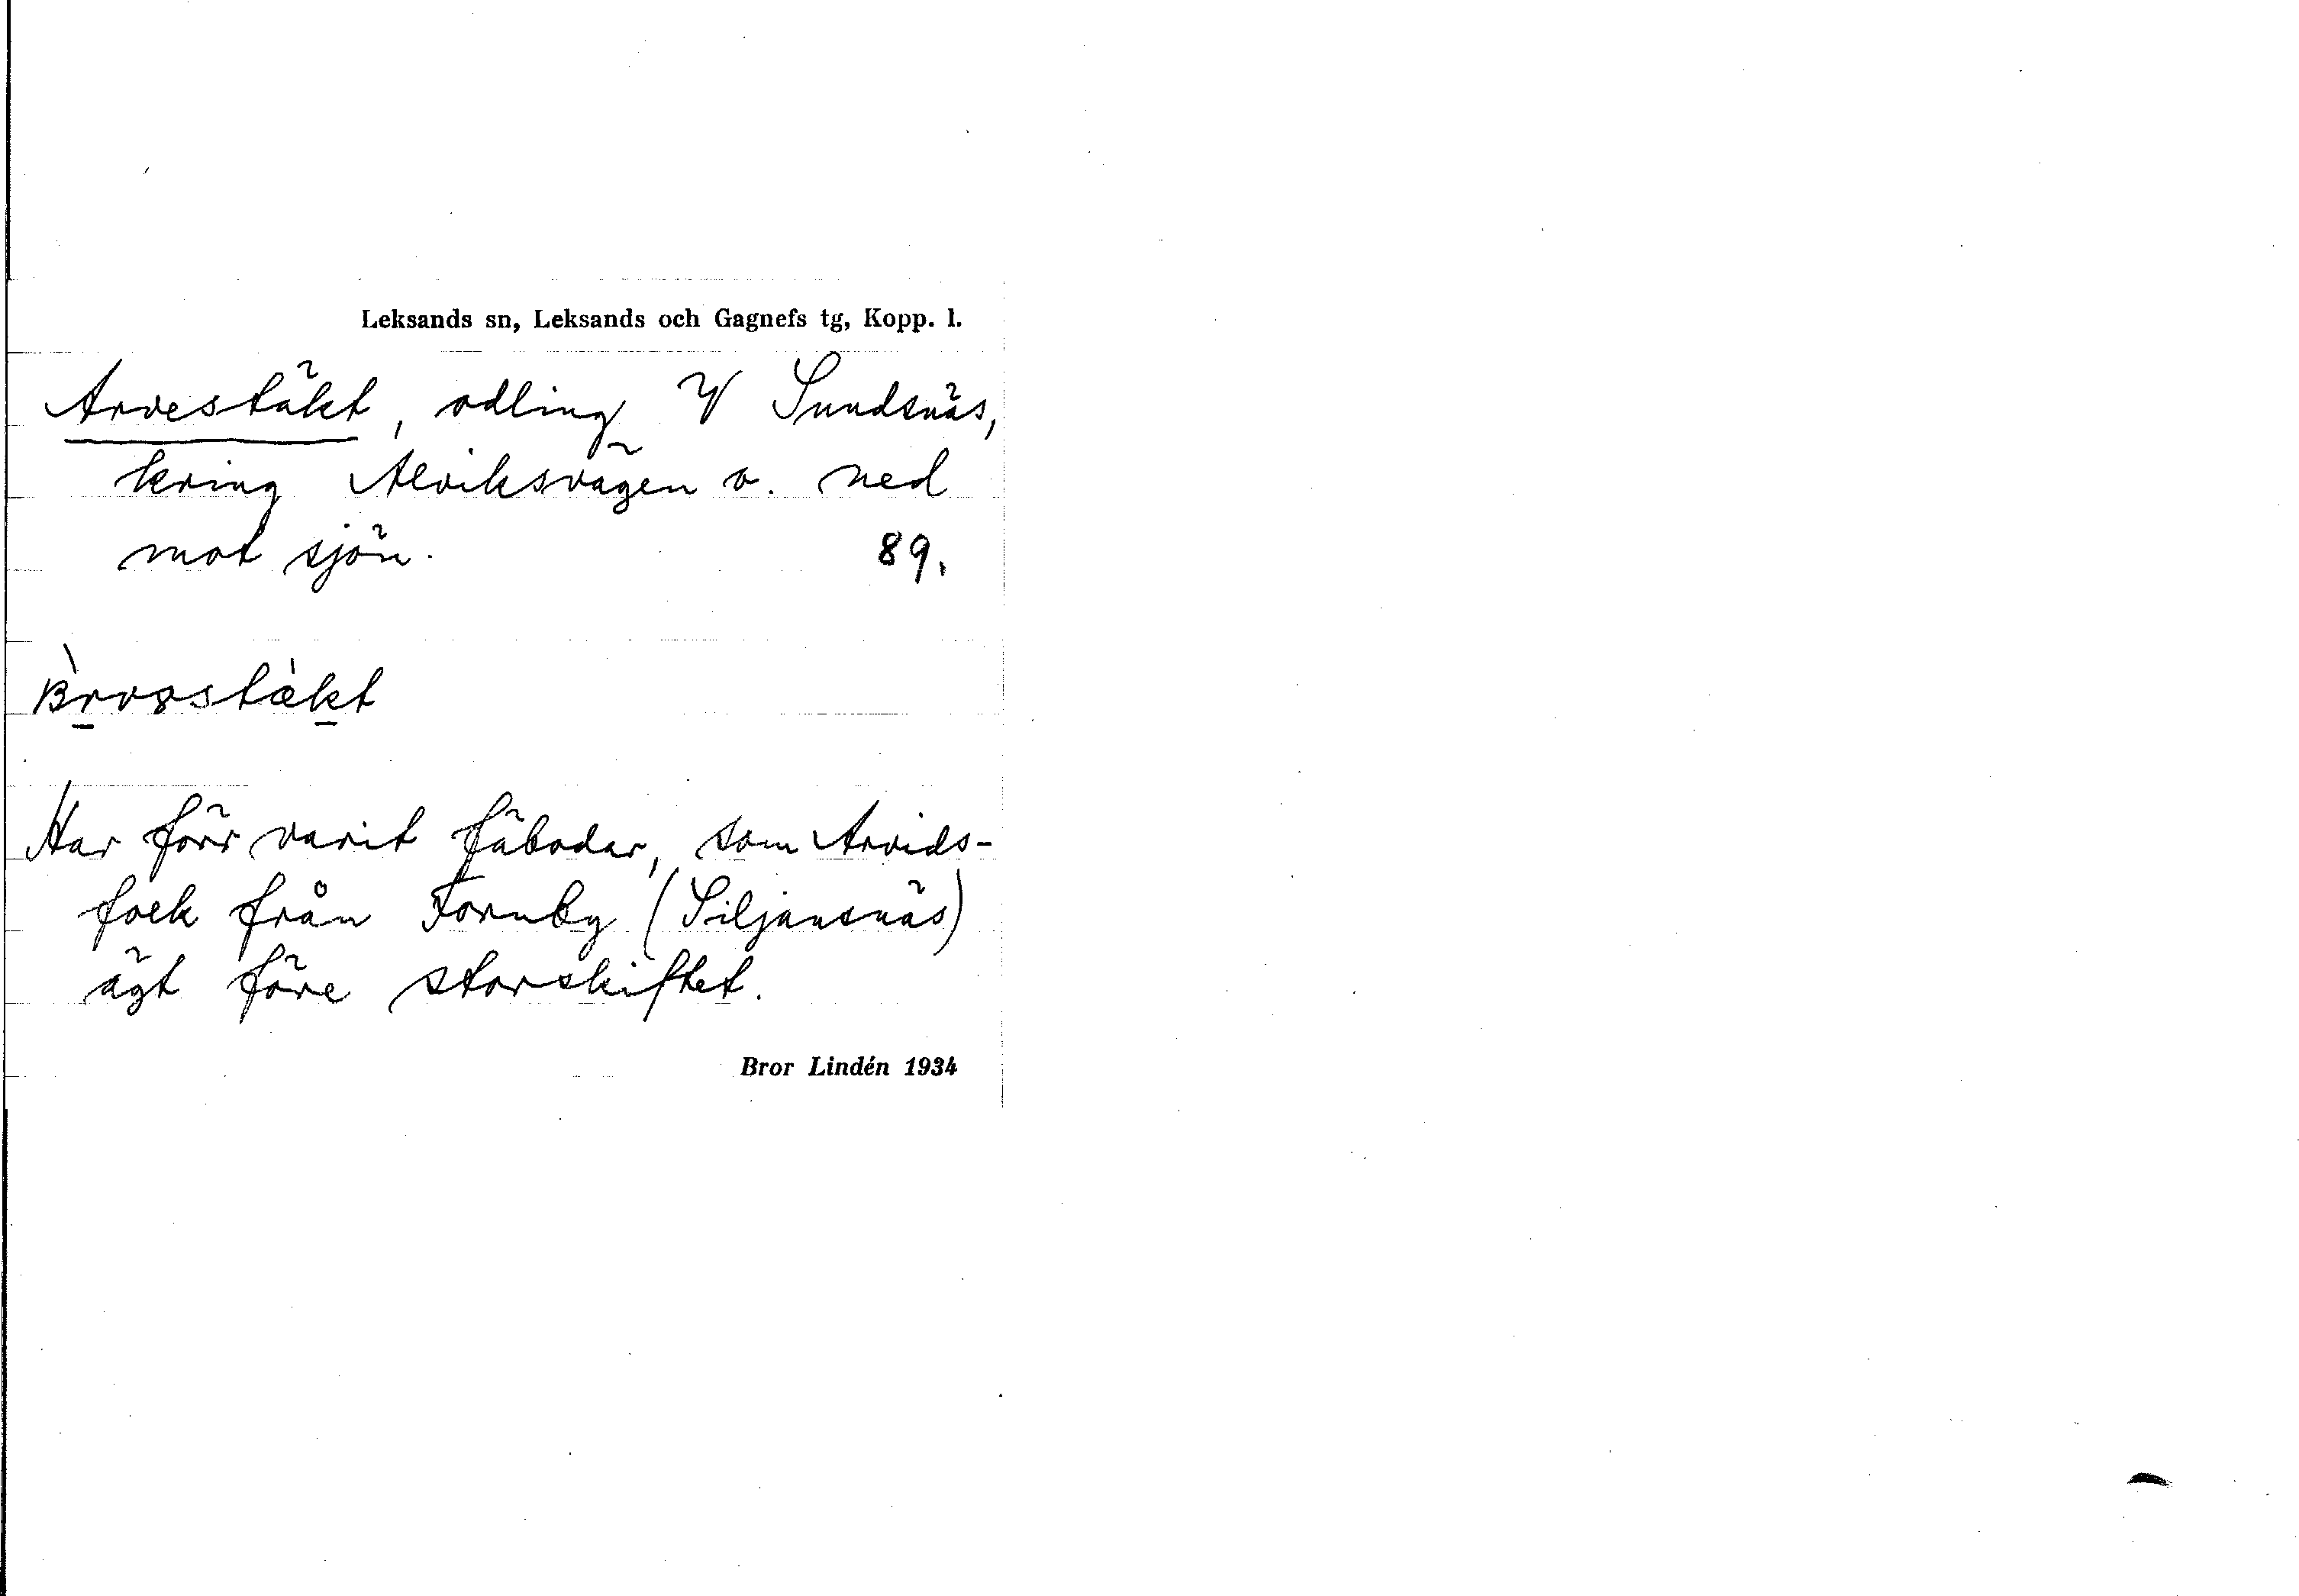 Leksands sn, Leksands och Gagnefs tg, Kopp. l.
Arvestäkt, odling V Sundsnäs,
kring Alviksvägen o. ned
mot sjön. 89.
Har förr varit fäbodar, som Arvids-
folk från Fornby (Siljansnäs)
ägt före storskiftet.
Bror Lindén 1934